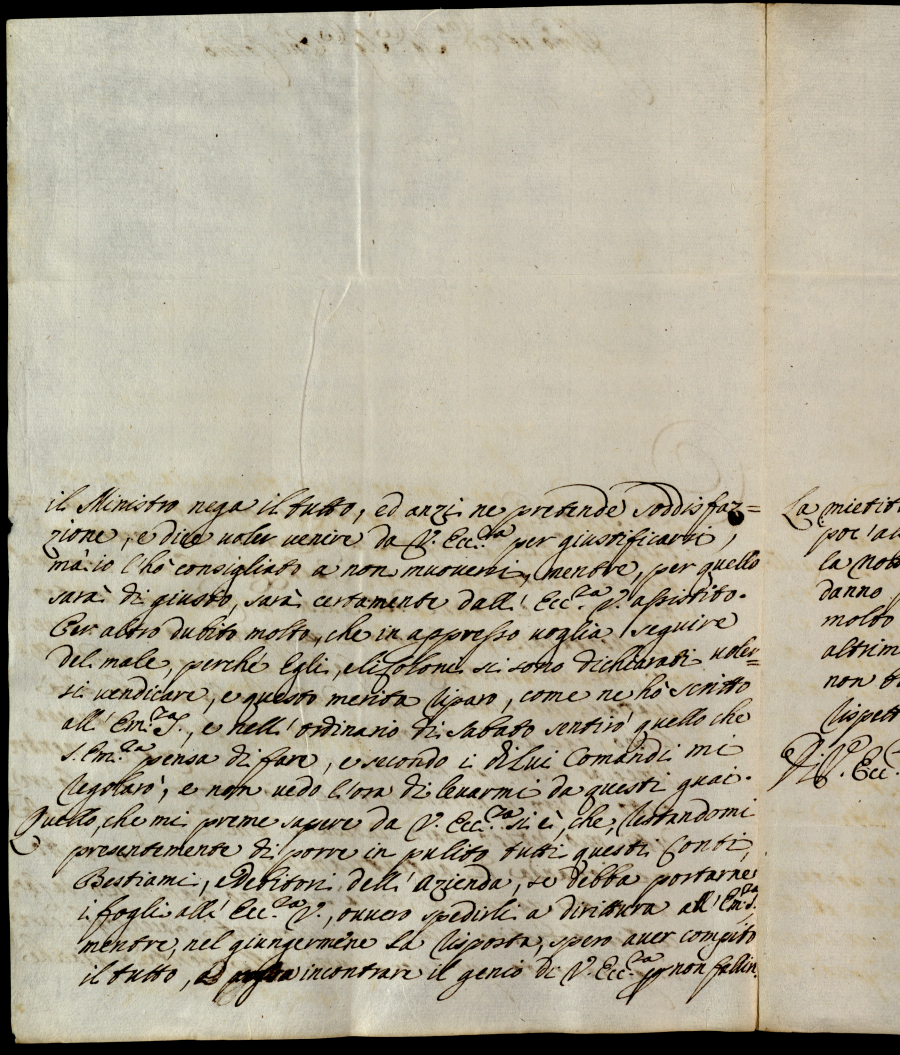 il Ministro nega il tutto, ed anzi ne pretende soddisfaz=
zione, e dice voler venire da V. Ecc.za per giustificarsi,
mà io l'hò consigliato a non muoversi, mentre, per quello
sarà di giusto, sarà certamente dall' Ecc.za V. assistito.
Per altro dubito molto, che in appresso voglia seguire
del male, perché Egli, e li Coloni si sono dichiarati voler=
si vendicare, e questo merita riparo, come ne hò scritto
all' Em.za S., e nell' ordinario di Sabato sentirò quello che
S. Em.za pensa di fare, e secondo i di Lui Comandi mi
regolarò, e non vedo l'ora di levarmi da questi guai.
Quello, che mi preme sapere da V. Ecc.za si è, che, restandomi
presentemente di porre in pulito tutti questi Conti,
Bestiami, e Debitori dell' Azienda, se debba portarne
i fogli all' Ecc.za V., ovvero spedirli a dirittura all' Em.za S.
mentre, nel giungermene la risposta, spero aver compito
il tutto, incontrare il genio di V. Ecc.za non fallin
La mietit
poc' a
la
danno
molto
altrim
non
rispett
Di V. Ecc.